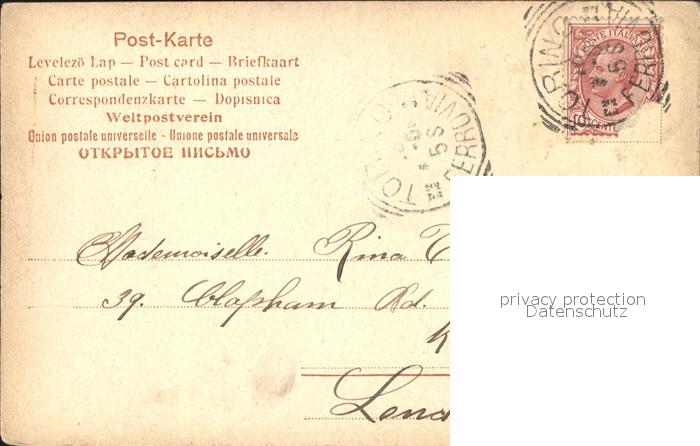 Post-Karte
Levelező Lap — Post card — Briefkaart
Carte postale — Cartolina postale
Correspondenzkarte — Dopisnica
Weltpostverein
Union postale universelle - Unione postale universale
ОТКРЫТОЕ ПИСЬМО
POSTE ITALIANE
TORINO
FERROVIA
TORINO
FERROVIA
Mademoiselle. Rina
39. Clapham Rd.
privacy protection
Datenschutz